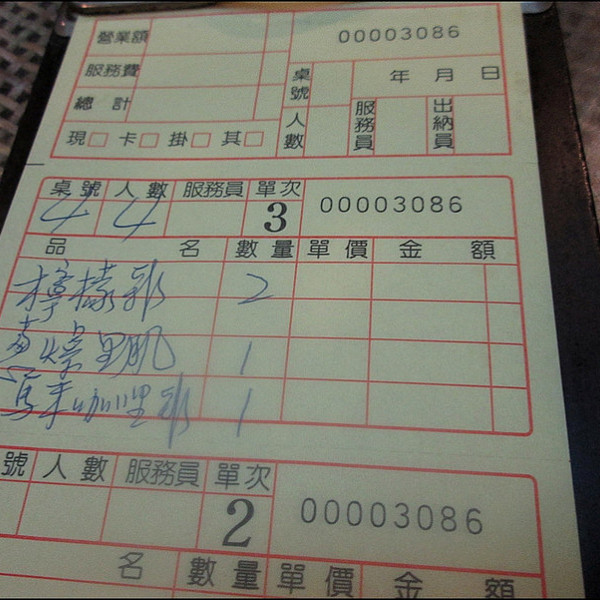 營業額 00003086
服務費 桌號 年 月 日
總計 人數 服務員 出納員
現□ 卡□ 掛□ 其□
桌號 人數 服務員 單次 00003086
4 4 3
品名 數量 單價 金額
檸檬 2
1
馬來咖哩 1
號 人數 服務員 單次 00003086
2
名 數量 單價 金額